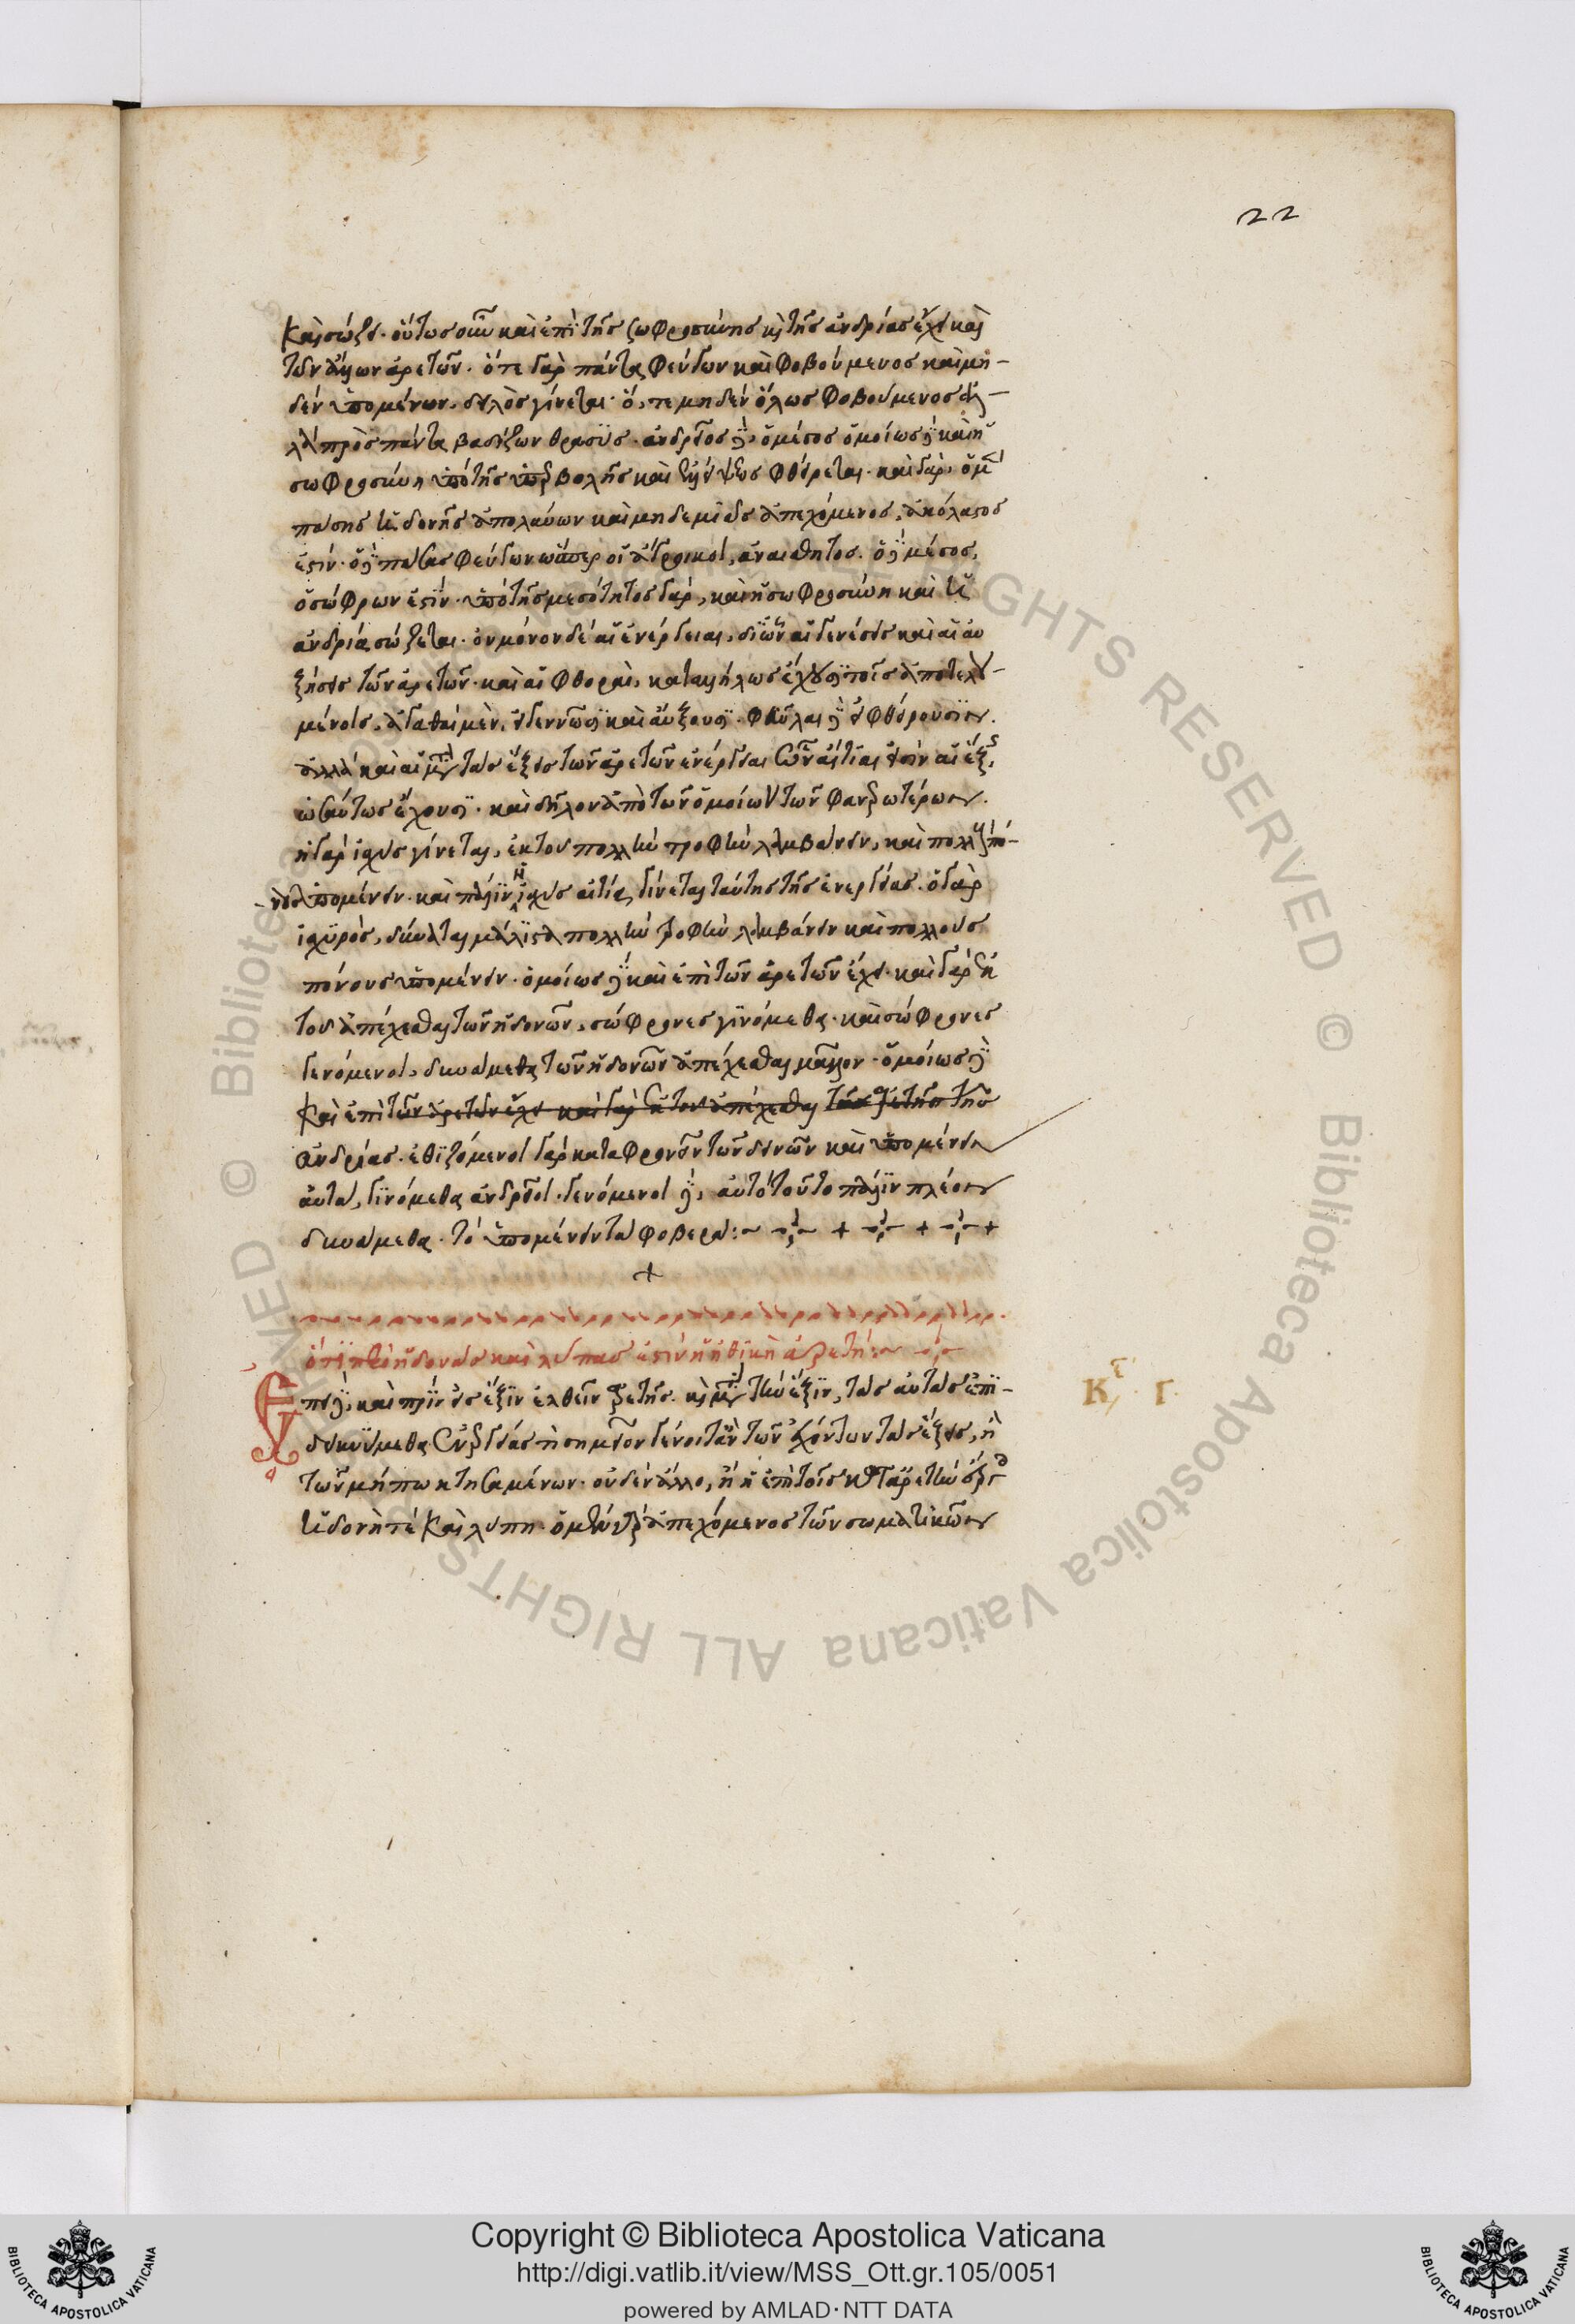 22
καὶ σώζει· οὕτως οὖν καὶ ἐπὶ τῆς σωφροσύνης κὶ τῆς ἀνδρίας ἔχει καὶ
τῶν ἄλλων ἀρετῶν· ὅτε γὰρ πάντας φεύγων καὶ φοβούμενος καὶ μη-
δὲν ὑπομένων, δειλὸς γίνεται· ὅ, τε μηδὲν ὅλως φοβούμενος ἀλ-
λὰ πρὸς πάντα βαδίζων θρασὺς· ἀνδρεῖος δὲ, ὁ μέσος ὁμοίως δὲ καὶ ἡ
σωφροσύνη ὑπὸ τῆς ὑπερβολῆς καὶ ἐλλείψεως φθείρεται· καὶ γὰρ, ὁ μὲν
πάσης ἡδονῆς ἀπολαύων καὶ μηδεμιᾶς ἀπεχόμενος, ἀκόλαστος
ἐστίν· ὁ δὲ πάσας φεύγων ὥσπερ οἱ ἄγροικοι, ἀναίσθητος. ὁ δὲ μέσος,
ὁ σώφρων ἐστὶν· ὑπὸ τῆς μεσότητος γὰρ, καὶ ἡ σωφροσύνη καὶ ἡ
ἀνδρία σώζεται· οὐ μόνον δὲ αἱ ἐνέργειαι, δι' ὧν αἱ γενέσεις καὶ αἱ αυ
ξήσεις τῶν ἀρετῶν· καὶ αἱ φθοραὶ, καταλλήλως ἔχουσι τοῖς ἀποτελου-
μένοις, ἀγαθαὶ μὲν, εἰ γεννῶσι καὶ αὔξουσι· φαῦλαι δὲ εἰ φθείρουσιν.
ἀλλὰ καὶ αἱ μετὰ τὰς ἕξεις τῶν ἀρετῶν ἐνέργειαι ὧν αἰτίαι εἰσὶν αἱ ἕξεις,
ὡσαύτως ἔχουσι· καὶ δῆλον ἀπὸ τῶν ὁμοίων τῶν φανερωτέρων.
ἡ γὰρ ἰσχὺς γίνεται, ἐκ τοῦ πολλὴν τροφὴν λαμβάνειν, καὶ πολλοὺς πό-
νους ὑπομένειν· καὶ πάλιν ἡ ἰσχὺς αἰτία, γίνεται ταύτης τῆς ἐνεργείας· ὁ γὰρ
ἰσχυρὸς, δύναται μάλιστα πολλὴν τροφὴν λαμβάνειν καὶ πολλοὺς
πόνους ὑπομένειν· ὁμοίως δὲ καὶ ἐπὶ τῶν ἀρετῶν ἔχει· καὶ γὰρ ἐκ
τοῦ ἀπέχεσθαι τῶν ἡδονῶν, σώφρονες γινόμεθα· καὶ σώφρονες
γενόμενοι, δυνάμεθα τῶν ἡδονῶν ἀπέχεσθαι μᾶλλον· ὁμοίως δὲ
καὶ ἐπὶ τῶν ἀρετῶν ἔχει καὶ γὰρ ἐκ τοῦ ἀπέχεσθαι τῆς
ἀνδρίας· ἐθιζόμενοι γὰρ καταφρονεῖν τῶν δεινῶν καὶ ὑπομένειν
αὐτὰ, γινόμεθα ἀνδρεῖοι· γενόμενοι δὲ, αὐτὸ τοῦτο πάλιν πλέον
δυνάμεθα· τὸ ὑπομένειν τὰ φοβερά:~ + +
+
ὅτι περὶ ἡδονὰς καὶ λύπας ἐστὶν ἡ ἠθικὴ ἀρετή:~
Ἐπεὶ δὲ, καὶ πρὶν εἰς ἕξιν ἐλθεῖν ἀρετῆς· κὶ μετὰ τὴν ἕξιν, τὰς αὐτὰς ἐπι-
δεικνύμεθα ἐνεργείας τί σημεῖον γένοιτ' ἂν τῶν ἐχόντων τὰς ἕξεις, ἢ
τῶν μήπω κτησαμένων· οὐδὲν ἄλλο, ἢ ἡ ἐπὶ τοῖς κατ' ἀρετὴν ἔργοις
ἡδονή τε καὶ λύπη· ὁ μὲν γὰρ ἀπεχόμενος τῶν σωματικῶν
Κε. Γ.
Copyright © Biblioteca Apostolica Vaticana
http://digi.vatlib.it/view/MSS_Ott.gr.105/0051
powered by AMLAD·NTT DATA